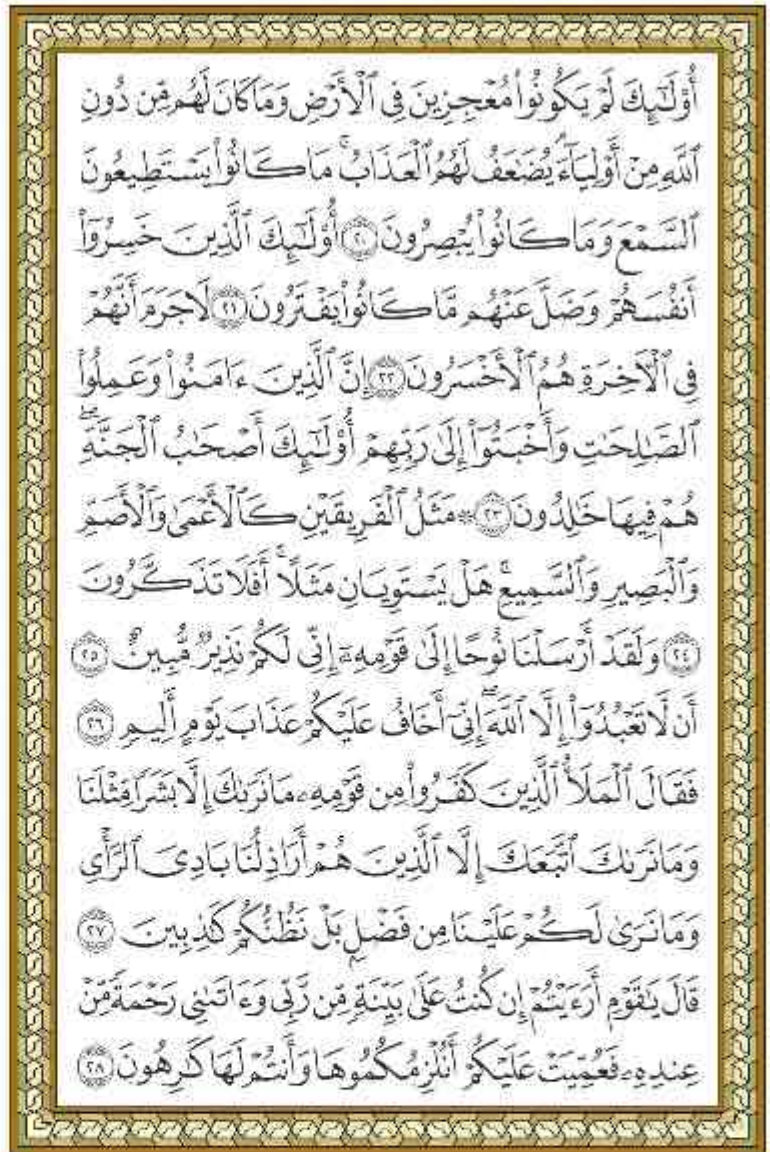 أُو۟لَـٰٓئِكَ لَمْ يَكُونُوا۟ مُعْجِزِينَ فِى ٱلْأَرْضِ وَمَا كَانَ لَهُم مِّن دُونِ
ٱللَّهِ مِنْ أَوْلِيَآءَ ۘ يُضَـٰعَفُ لَهُمُ ٱلْعَذَابُ ۚ مَا كَانُوا۟ يَسْتَطِيعُونَ
ٱلسَّمْعَ وَمَا كَانُوا۟ يُبْصِرُونَ ٢٠ أُو۟لَـٰٓئِكَ ٱلَّذِينَ خَسِرُوٓا۟
أَنفُسَهُمْ وَضَلَّ عَنْهُم مَّا كَانُوا۟ يَفْتَرُونَ ٢١ لَا جَرَمَ أَنَّهُمْ
فِى ٱلْـَٔاخِرَةِ هُمُ ٱلْأَخْسَرُونَ ٢٢ إِنَّ ٱلَّذِينَ ءَامَنُوا۟ وَعَمِلُوا۟
ٱلصَّـٰلِحَـٰتِ وَأَخْبَتُوٓا۟ إِلَىٰ رَبِّهِمْ أُو۟لَـٰٓئِكَ أَصْحَـٰبُ ٱلْجَنَّةِ ۖ
هُمْ فِيهَا خَـٰلِدُونَ ٢٣ ۞ مَثَلُ ٱلْفَرِيقَيْنِ كَٱلْأَعْمَىٰ وَٱلْأَصَمِّ
وَٱلْبَصِيرِ وَٱلسَّمِيعِ ۚ هَلْ يَسْتَوِيَانِ مَثَلًا ۚ أَفَلَا تَذَكَّرُونَ
٢٤ وَلَقَدْ أَرْسَلْنَا نُوحًا إِلَىٰ قَوْمِهِۦٓ إِنِّى لَكُمْ نَذِيرٌ مُّبِينٌ ٢٥
أَن لَّا تَعْبُدُوٓا۟ إِلَّا ٱللَّهَ ۖ إِنِّىٓ أَخَافُ عَلَيْكُمْ عَذَابَ يَوْمٍ أَلِيمٍ ٢٦
فَقَالَ ٱلْمَلَأُ ٱلَّذِينَ كَفَرُوا۟ مِن قَوْمِهِۦ مَا نَرَىٰكَ إِلَّا بَشَرًا مِّثْلَنَا
وَمَا نَرَىٰكَ ٱتَّبَعَكَ إِلَّا ٱلَّذِينَ هُمْ أَرَاذِلُنَا بَادِىَ ٱلرَّأْىِ
وَمَا نَرَىٰ لَكُمْ عَلَيْنَا مِن فَضْلٍۭ بَلْ نَظُنُّكُمْ كَـٰذِبِينَ ٢٧
قَالَ يَـٰقَوْمِ أَرَءَيْتُمْ إِن كُنتُ عَلَىٰ بَيِّنَةٍ مِّن رَّبِّى وَءَاتَىٰنِى رَحْمَةً مِّنْ
عِندِهِۦ فَعُمِّيَتْ عَلَيْكُمْ أَنُلْزِمُكُمُوهَا وَأَنتُمْ لَهَا كَـٰرِهُونَ ٢٨